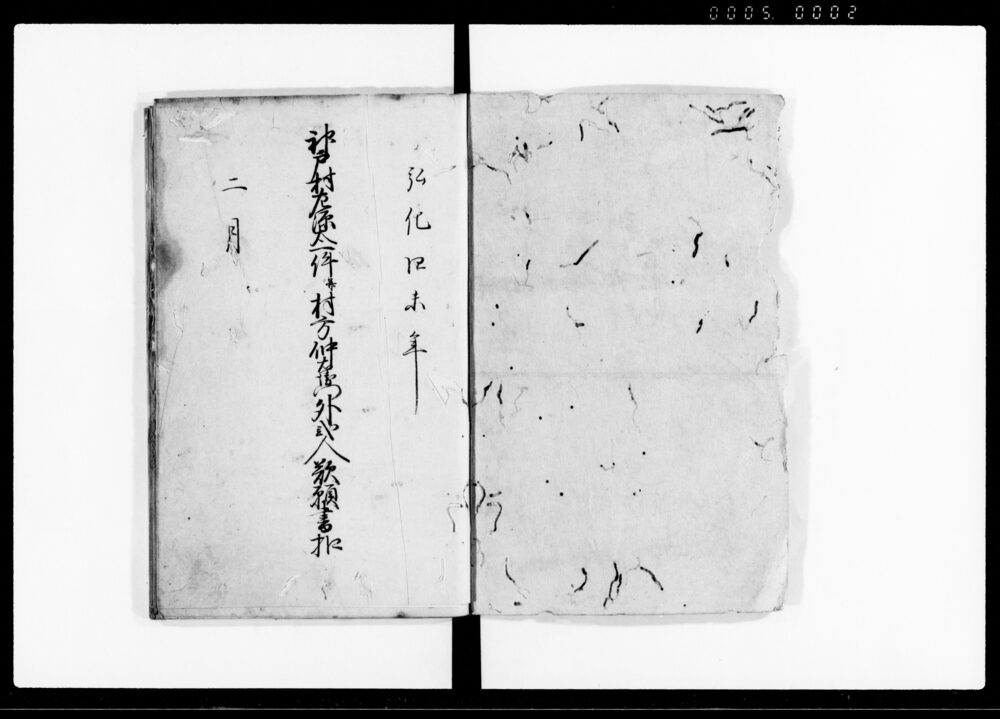 0005. 0002
弘化四未年
村 一件并村方仲右衛門外弐人歎願書扣
二月